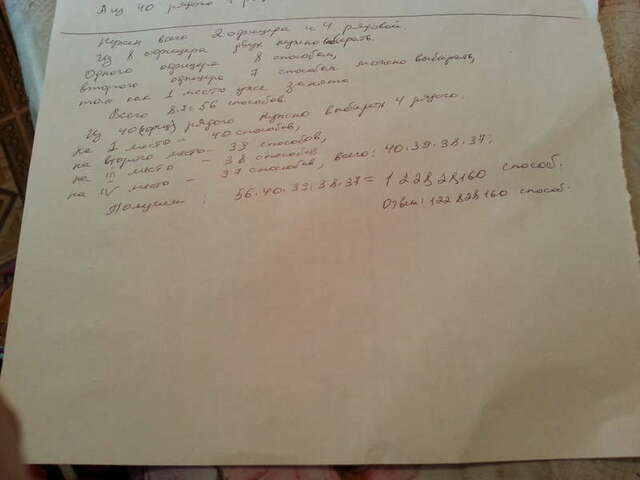 А из 40 рядого
Нужен всего 2 офицера и 4 рядовой.
Из 8 офицера двух нужно выбирать.
Одного офицера 8 способам,
второго офицера 7 способам можно выбирать,
так как 1 место уже занято
Всего 8.7=56 способов.
Из 40 рядого нужно выбирать 4 рядого.
на I место - 40 способов,
на второго место - 39 способов,
на III место - 38 способов
на IV место - 37 способов, всего: 40.39.38.37;
Получим: 56.40.39.38.37 = 122828160 способ.
Ответ: 122828160 способ.